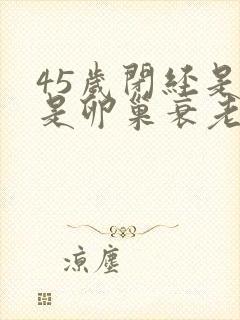 45歲閉經是
是卵巢衰老
涼塵